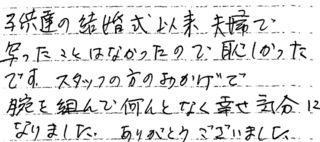 子供達の結婚式以来 夫婦で
写ったことはなかったので 恥しかった
です. スタッフの方のおかげで
腕を組んで何んとなく幸せ気分に
なりました. ありがとうございました.